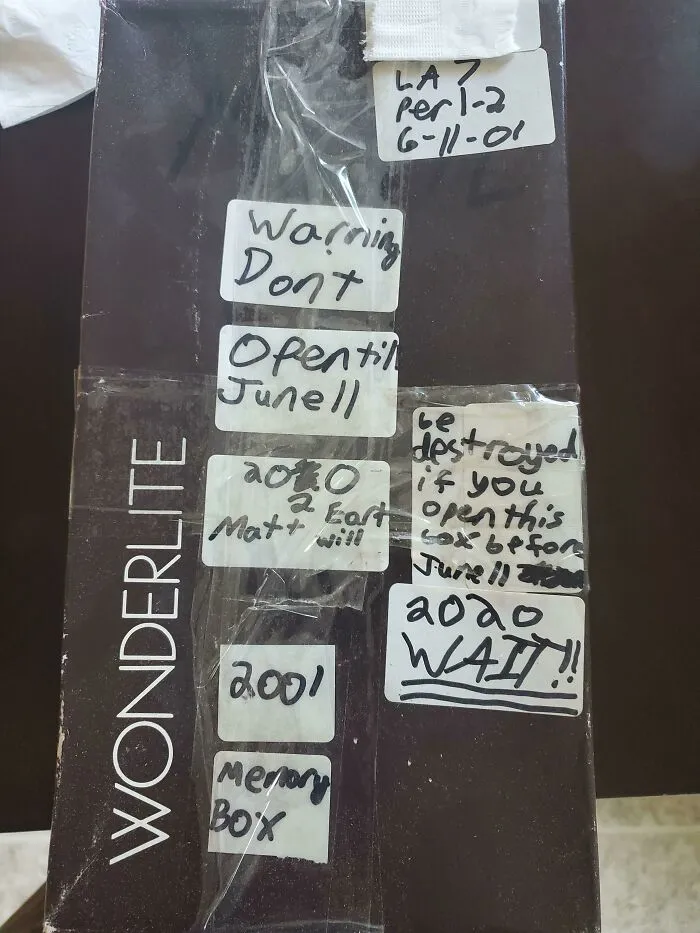 LA 7
Per 1-2
6-11-01
Warning
Dont
Open till
June 11
2020
2
Matt Eart
will
be
destroyed
if you
open this
box before
June 11
2020
WAIT!!
2001
Memory
BOX
WONDERLITE